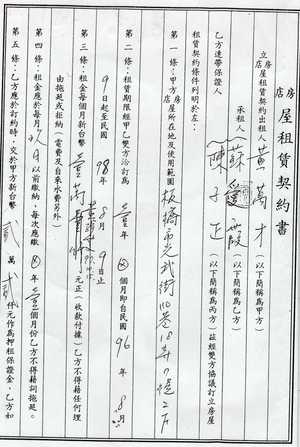 房屋租賃契約書
店
立房屋租賃契約出租人 黃萬才 (以下簡稱為甲方)
店
承租人 蘇愛霞 (以下簡稱為乙方)
乙方連帶保證人 陳子正 (以下簡稱為丙方) 茲經雙方協議訂立房屋
租賃契約條件列明於左:
第一條:甲方房屋所在地及使用範圍 板橋市 街110巷18弄 號2房
店
第二條:租賃期限經甲乙雙方洽訂為 壹年 個月即自民國 96年 8月
9日起至民國 98年 8月 9日止
第三條:租金每個月新台幣 壹萬 元正(收款付據)乙方不得藉任何理
由拖延或拒納(電費及自來水費另外)
第四條:租金應於每月 9日以前繳納,每次應繳 年 壹個月份乙方不得藉詞拖延。
第五條:乙方應於訂約時,交於甲方新台幣 貳萬 貳仟元作為押租保證金,乙方如